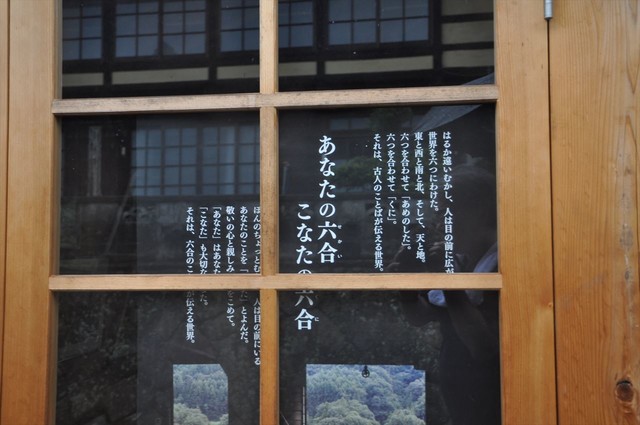 はるか遠いむかし、人は目の前に広が
世界を六つにわけた。
東と西と南と北、そして、天と地。
六つを合わせて「あめのした」。
六つを合わせて「くに」。
それは、古人のことばが伝える世界。
あなたの六合
せかい
こなたの六合
に
ほんのちょっとむ 人は目の前にいる
あなたのことを「 」とよんだ。
敬いの心と親しみ をこめて。
「あなた」はあな
「こなた」も大切な た。
それは、六合のこ が伝える世界。